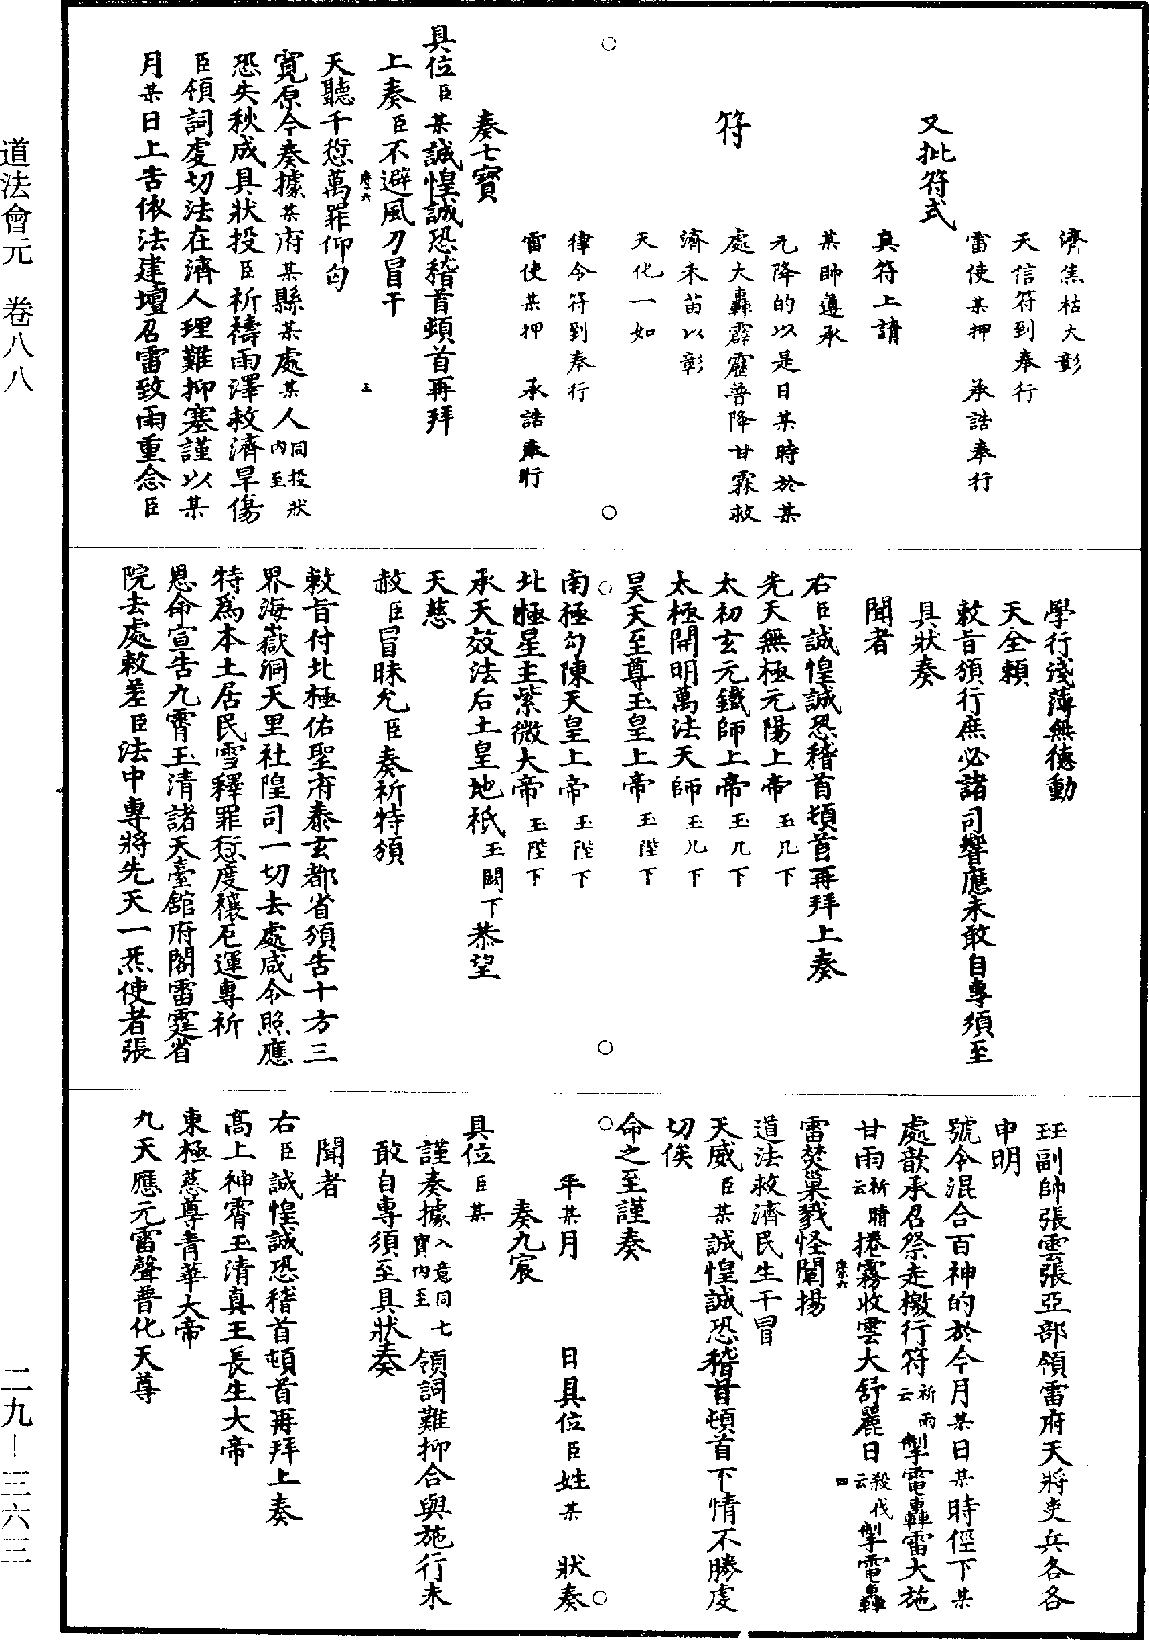 濟焦枯大彰
天信符到奉行
雷使某押　承誥奉行
又批符式
真符上請
某帥遵承
元降的以是日某時於某
處大轟霹靂普降甘霖救
濟禾苗以彰
天化一如
符
律令符到奉行
雷使某押　承誥奉行
奏七寶
具位臣某誠惶誠恐稽首頓首再拜
上奏臣不避風刀冒干
天聽千愆萬罪仰匄
寬原今奏據某府某縣某處某人同投狀內至
恐失秋成具狀投臣祈禱雨澤救濟旱傷
臣領詞虔切法在濟人理難抑塞謹以某
月某日上告依法建壇召雷致雨重念臣
學行淺薄無德動
天全賴
敕旨頒行庶必諸司響應未敢自專須至
具狀奏
聞者
右臣誠惶誠恐稽首頓首再拜上奏
先天無極元陽上帝玉几下
太初玄元鐵師上帝玉几下
太極開明萬法天師玉几下
昊天至尊玉皇上帝玉陛下
南極勾陳天皇上帝玉陛下
北極星主紫微大帝玉陛下
承天效法后土皇地祇玉闕下恭望
天慈
赦臣冒昧允臣奏祈特頒
敕旨付北極佑聖府泰玄都省頒告十方三
界海嶽洞天里社隍司一切去處咸令照應
特為本土居民雪釋罪愆度禳厄運專祈
恩命宣告九霄玉清諸天臺館府閣雷霆省
院去處敕差臣法中專將先天一炁使者張
珏副帥張雲張亞部領雷府天將吏兵各各
申明
號令混合百神的於今月某日某時徑下某
處歆承召祭走檄行符祈雨云掣電轟雷大施
甘雨祈晴云捲霧收雲大舒麗日殺伐云掣電轟
雷焚巢戮怪闡揚
道法救濟民生干冒
天威臣某誠惶誠恐稽首頓首下情不勝虔
切俟
命之至謹奏
年某月　　日具位臣姓某　狀奏
奏九宸
具位臣某
謹奏據入意同七寶內至領詞難抑合與施行未
敢自專須至具狀奏
聞者
右臣誠惶誠恐稽首頓首再拜上奏
高上神霄玉清真王長生大帝
東極慈尊青華大帝
九天應元雷聲普化天尊
道法會元　卷八八
二九—三六三